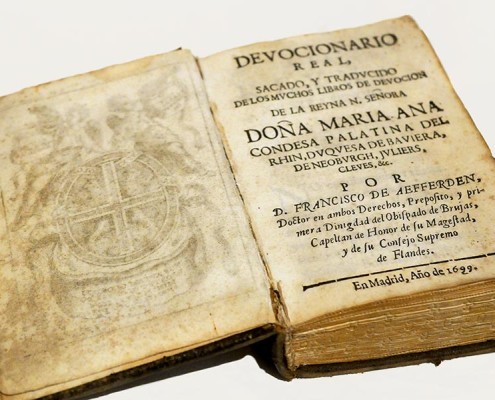 DEVOCIONARIO
REAL,
SACADO, Y TRADVCIDO
DE LOS MVCHOS LIBROS DE DEVOCION
DE LA REYNA N. SEÑORA
DOÑA MARIA ANA
CONDESA PALATINA DEL
RHIN, DVQVESA DE BAVIERA,
DE NEOBVRGH, JVLIERS,
CLEVES, &c.
POR
D. FRANCISCO DE AEFFERDEN,
Doctor en ambos Derechos, Preposito, y pri-
mera Dinigdad del Obispado de Brujas,
Capellan de Honor de su Magestad,
y de su Consejo Supremo
de Flandes.
En Madrid, Año de 1699.